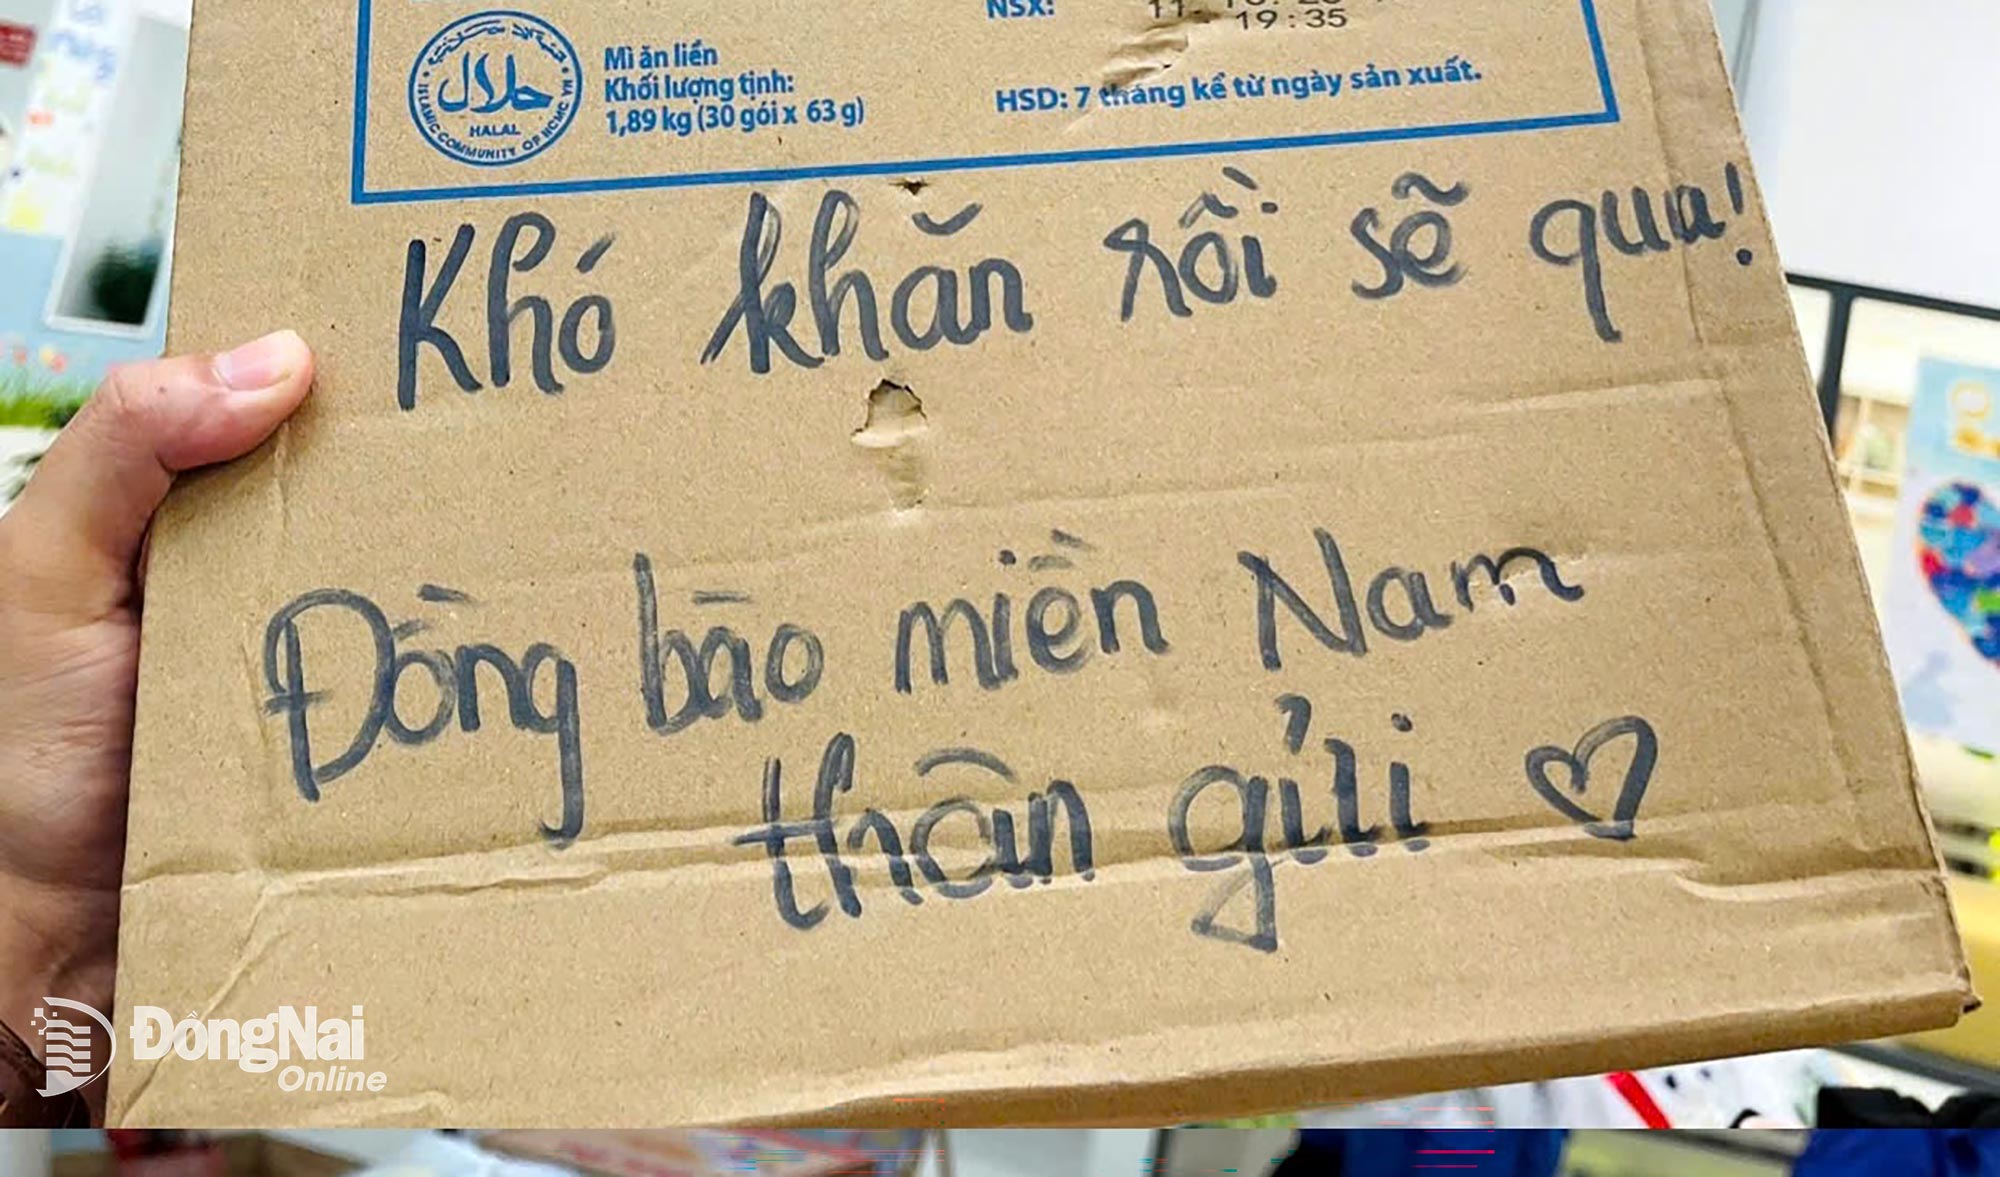 NSX:
19:35
Mì ăn liền
Khối lượng tịnh:
1,89 kg (30 gói x 63 g)
HSD: 7 tháng kể từ ngày sản xuất.
حلال
HALAL
ISLAMIC COMMUNITY OF HCMC VN
Khó khăn rồi sẽ qua!
Đồng bào miền Nam
thân gửi
ĐồngNai
Online